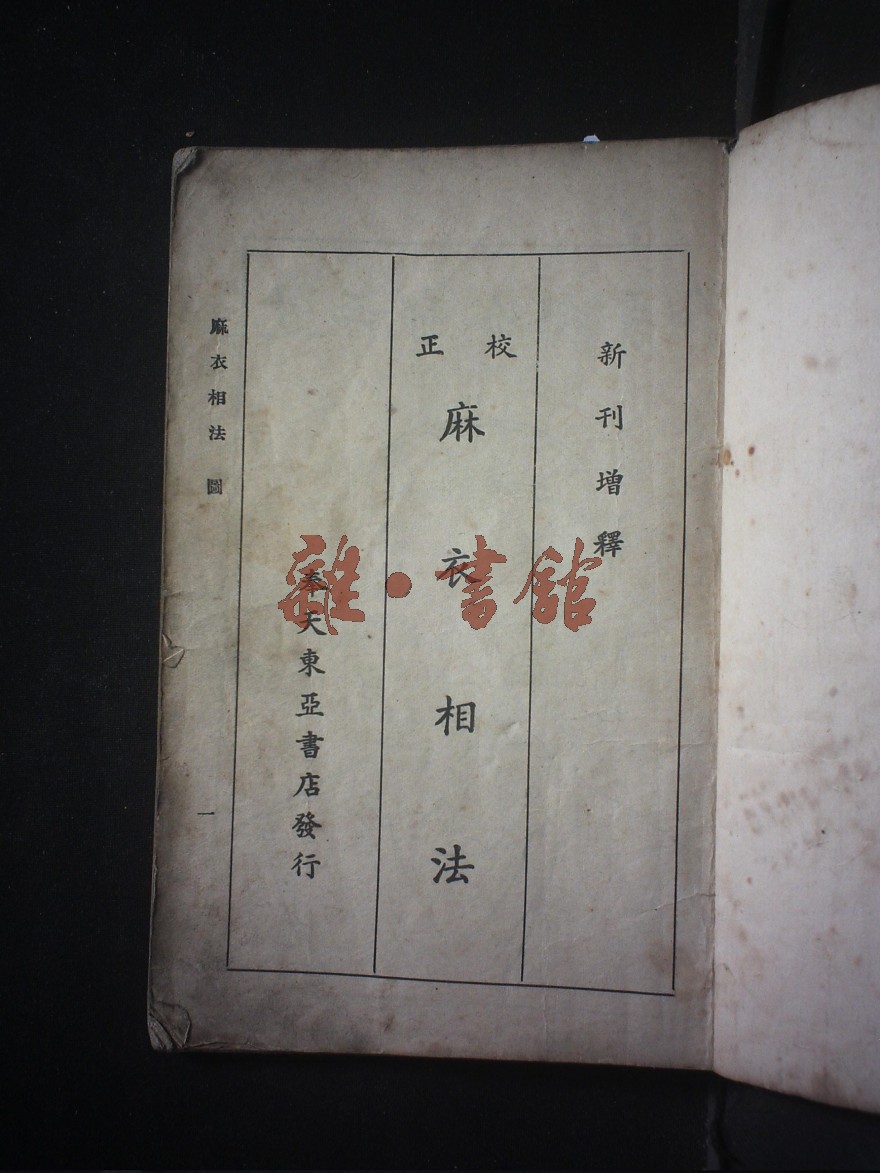 新刊增釋
校正
麻衣相法
奉天東亞書店發行
麻衣相法 圖
一
雜·書館